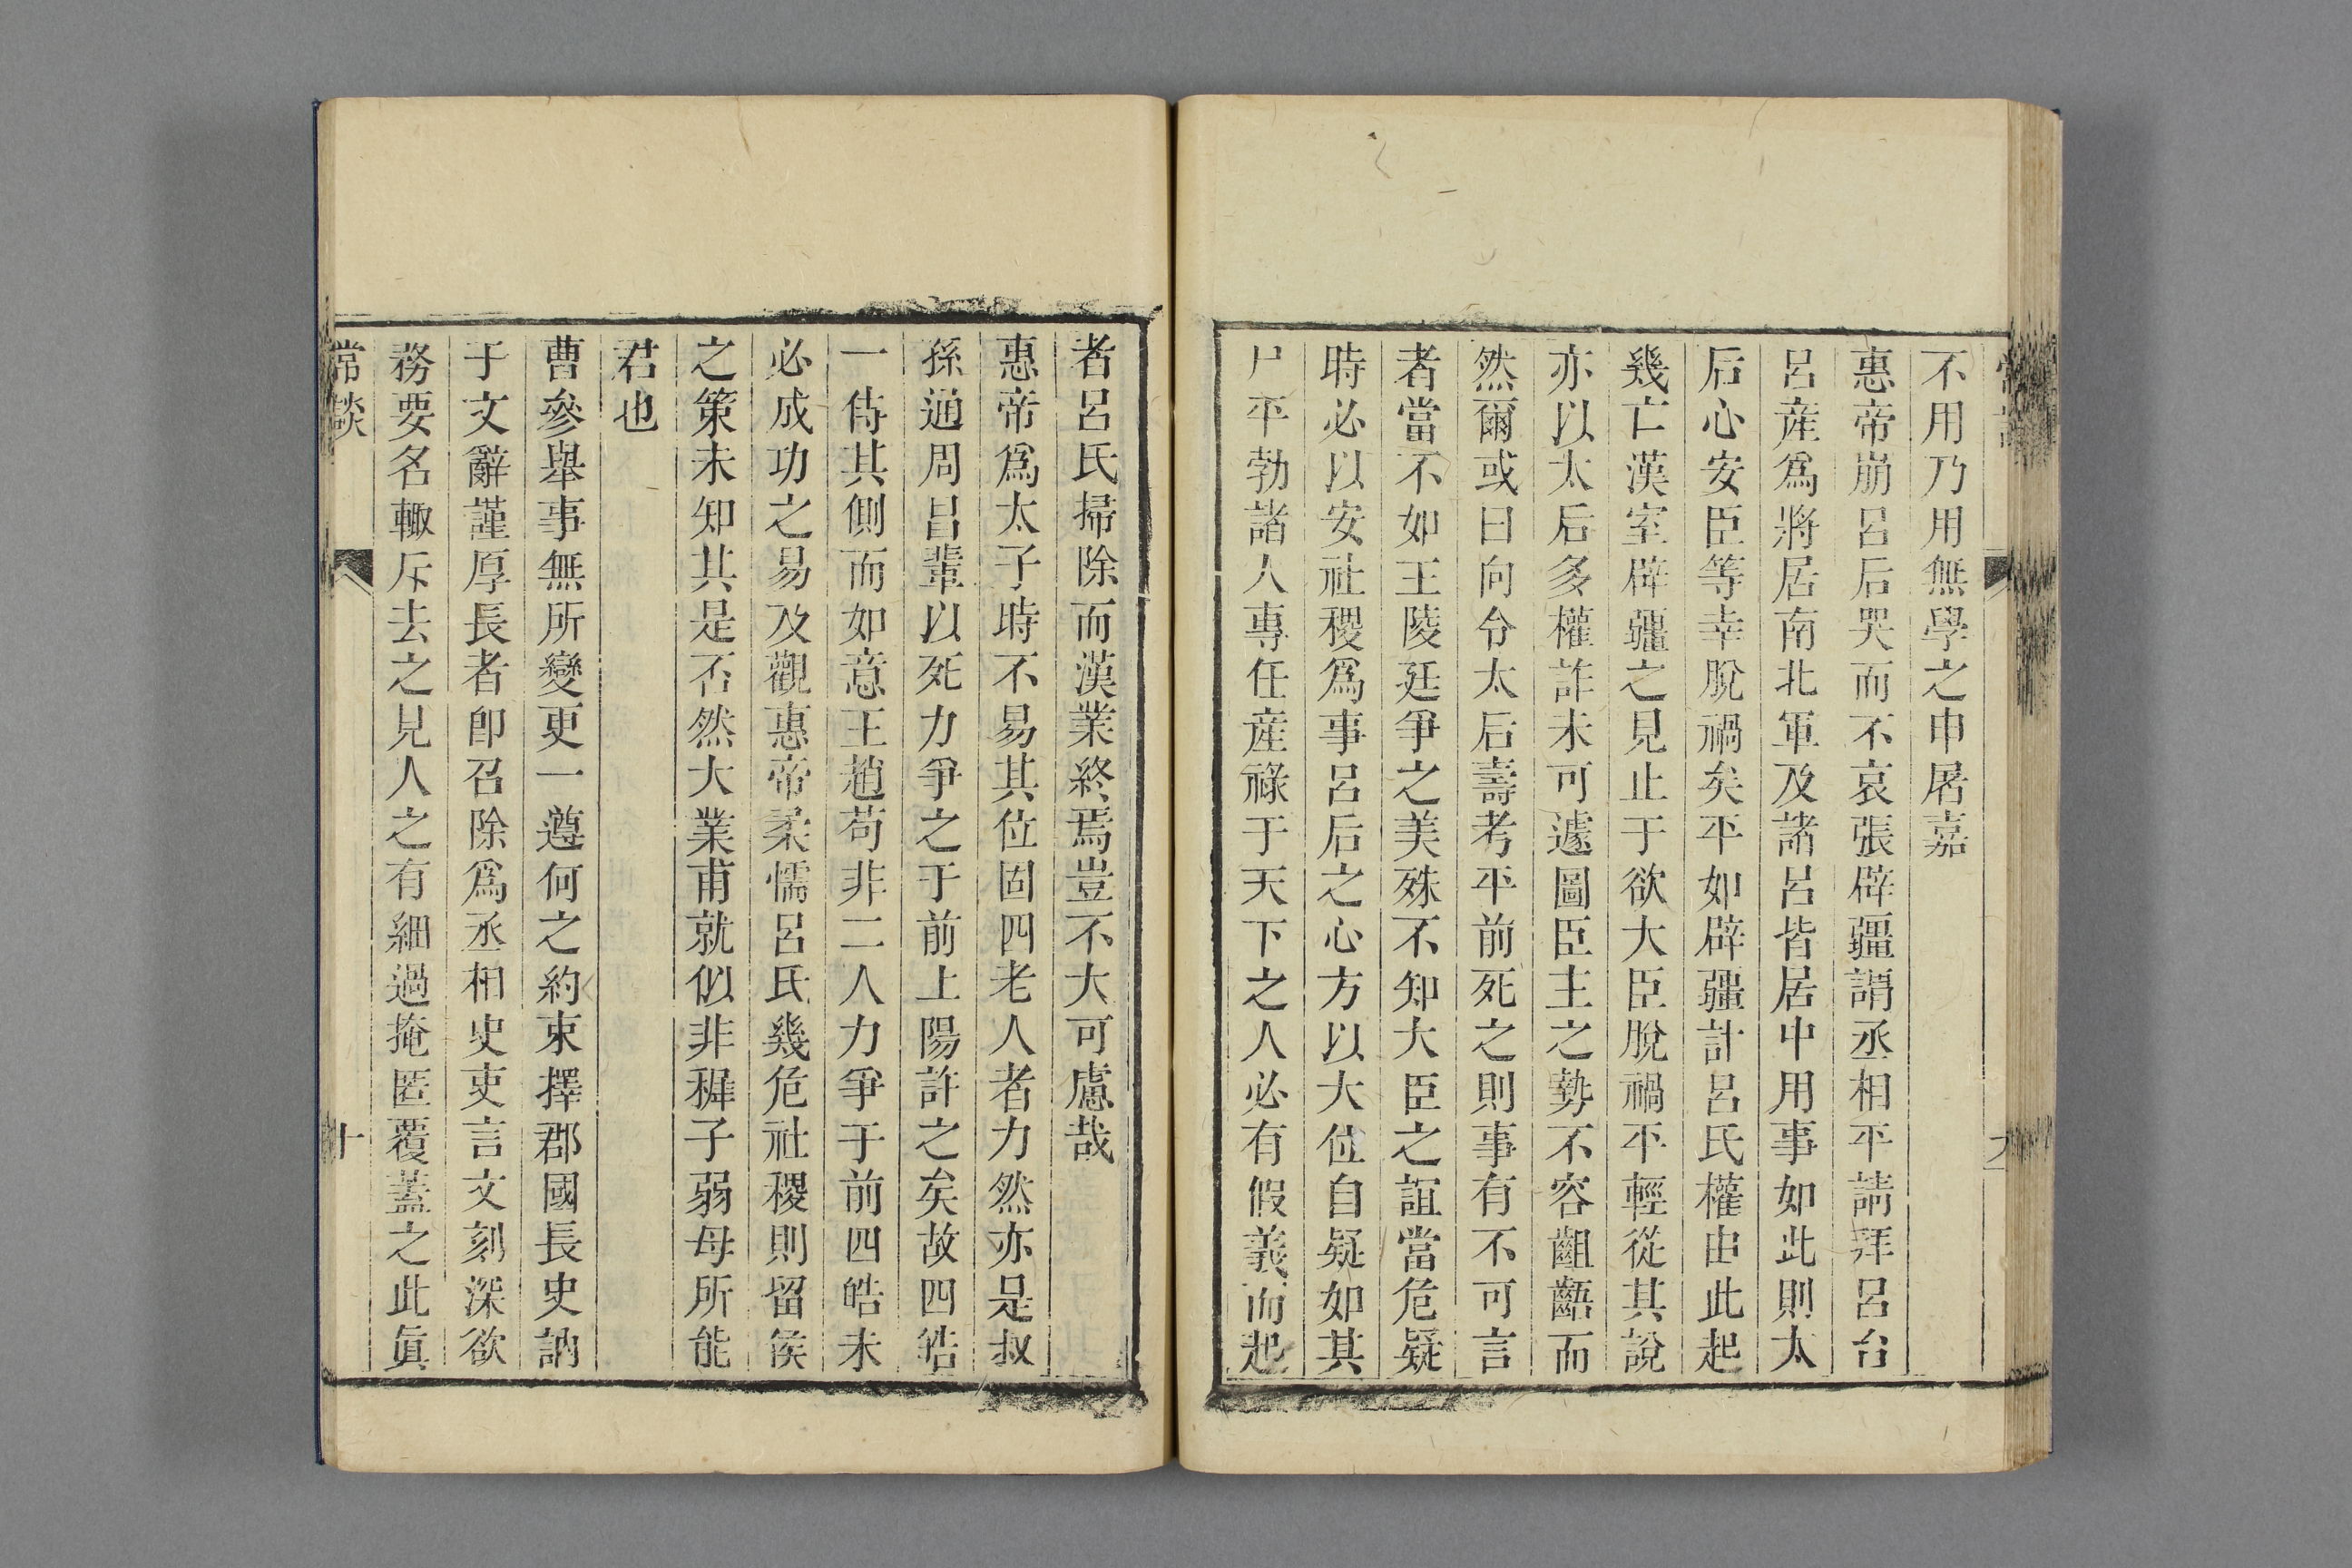 不用乃用無學之申屠嘉
惠帝崩呂后哭而不哀張辟疆謂丞相平請拜呂台
呂產爲將居南北軍及諸呂皆居中用事如此則太
后心安臣等幸脫禍矣平如辟疆計呂氏權由此起
幾亡漢室辟疆之見止于欲大臣脫禍平輕從其說
亦以太后多權詐未可遽圖臣主之勢不容齟齬而
然爾或曰向令太后壽考平前死之則事有不可言
者當不如王陵廷爭之美殊不知大臣之誼當危疑
時必以安社稷爲事呂后之心方以大位自疑如其
平勃諸人專任產祿于天下之人必有假義而起
者呂氏掃除而漢業終焉豈不大可慮哉
惠帝爲太子時不易其位固四老人者力然亦是叔
孫通周昌輩以死力爭之于前上陽許之矣故四皓
一侍其側而如意王趙苟非二人力爭于前四皓未
必成功之易及觀惠帝柔懦呂氏幾危社稷則留侯
之策未知其是否然大業甫就似非穉子弱母所能
君也
曹參舉事無所變更一遵何之約束擇郡國長史訥
于文辭謹厚長者卽召除爲丞相史吏言文刻深欲
務要名輙斥去之見人之有細過掩匿覆蓋之此眞
常談
十